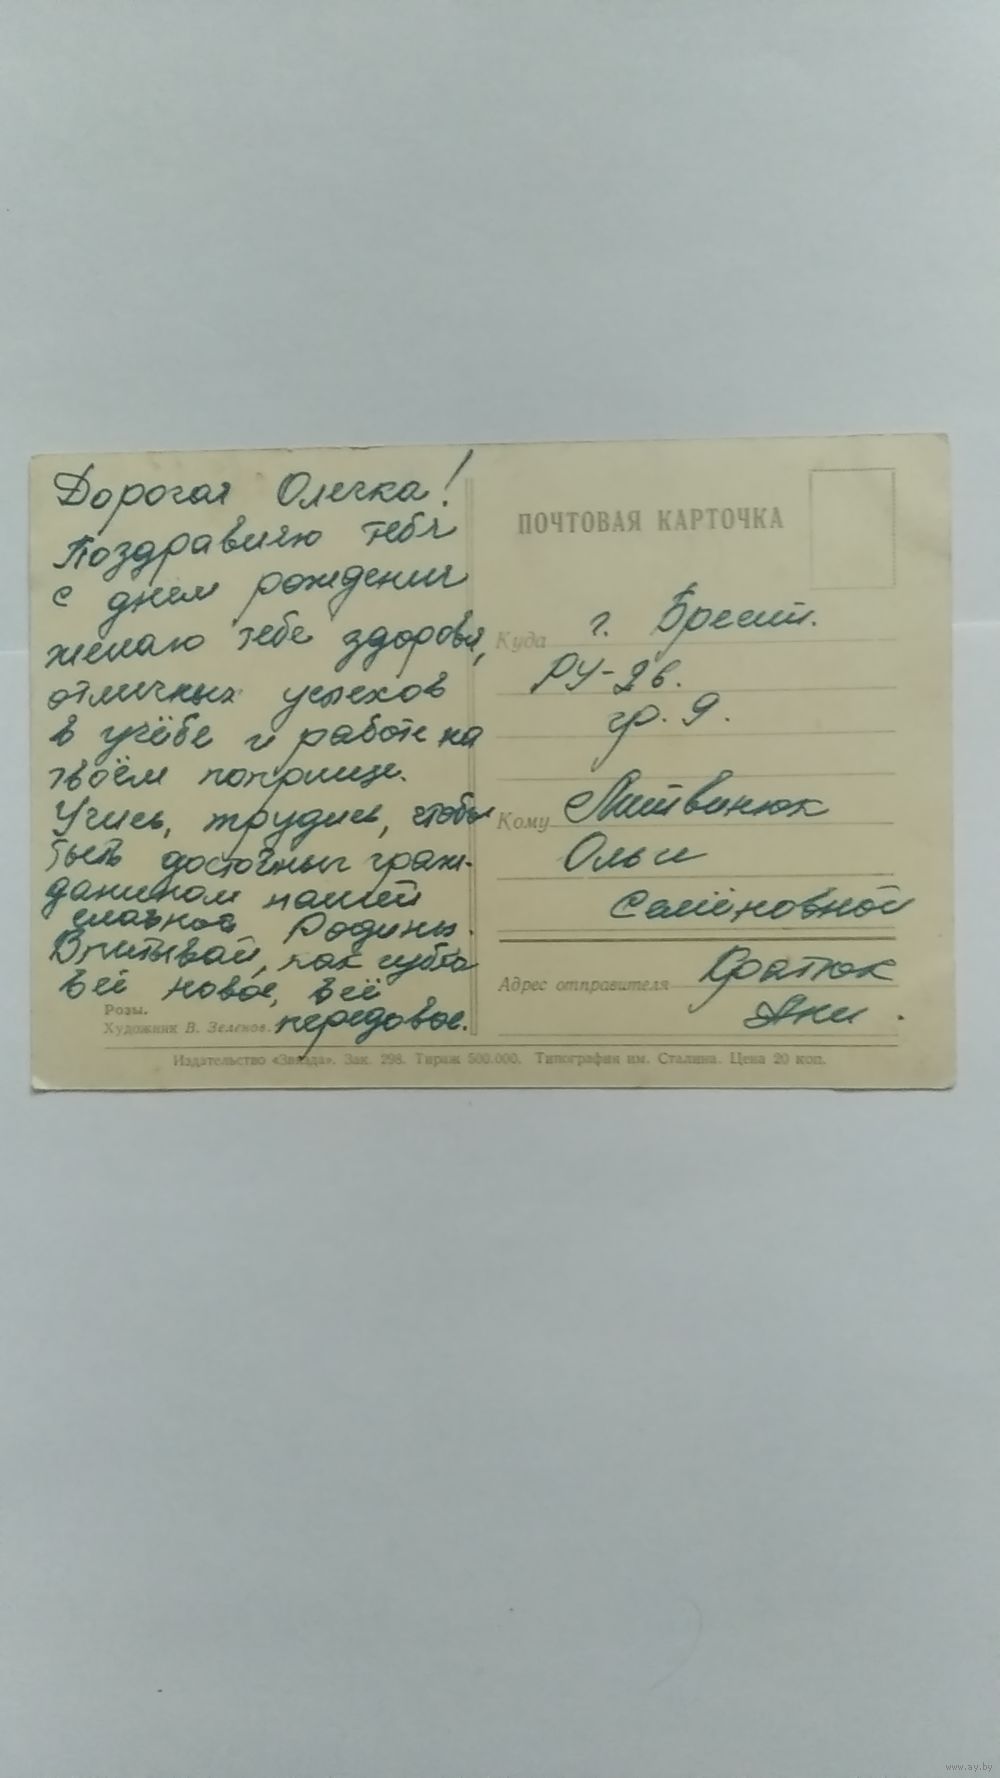 Дорогая Олечка!
Поздравляю тебя
с днём рождения
желаю тебе здоровья,
отличных успехов
в учёбе и работе на
твоём поприще.
Учись, трудись, чтобы
быть достойным граж-
данином нашей
славной Родины.
Впитывай, как губка
всё новое, всё
передовое.
Розы.
Художник В. Зеленов.
ПОЧТОВАЯ КАРТОЧКА
Куда г. Брест.
РУ-2 в.
гр. 9.
Кому Литвинюк
Ольги
Семёновной
Адрес отправителя Кратюк
Ани.
Издательство «Звязда». Зак. 298. Тираж 500.000. Типография им. Сталина. Цена 20 коп.
www.ay.by